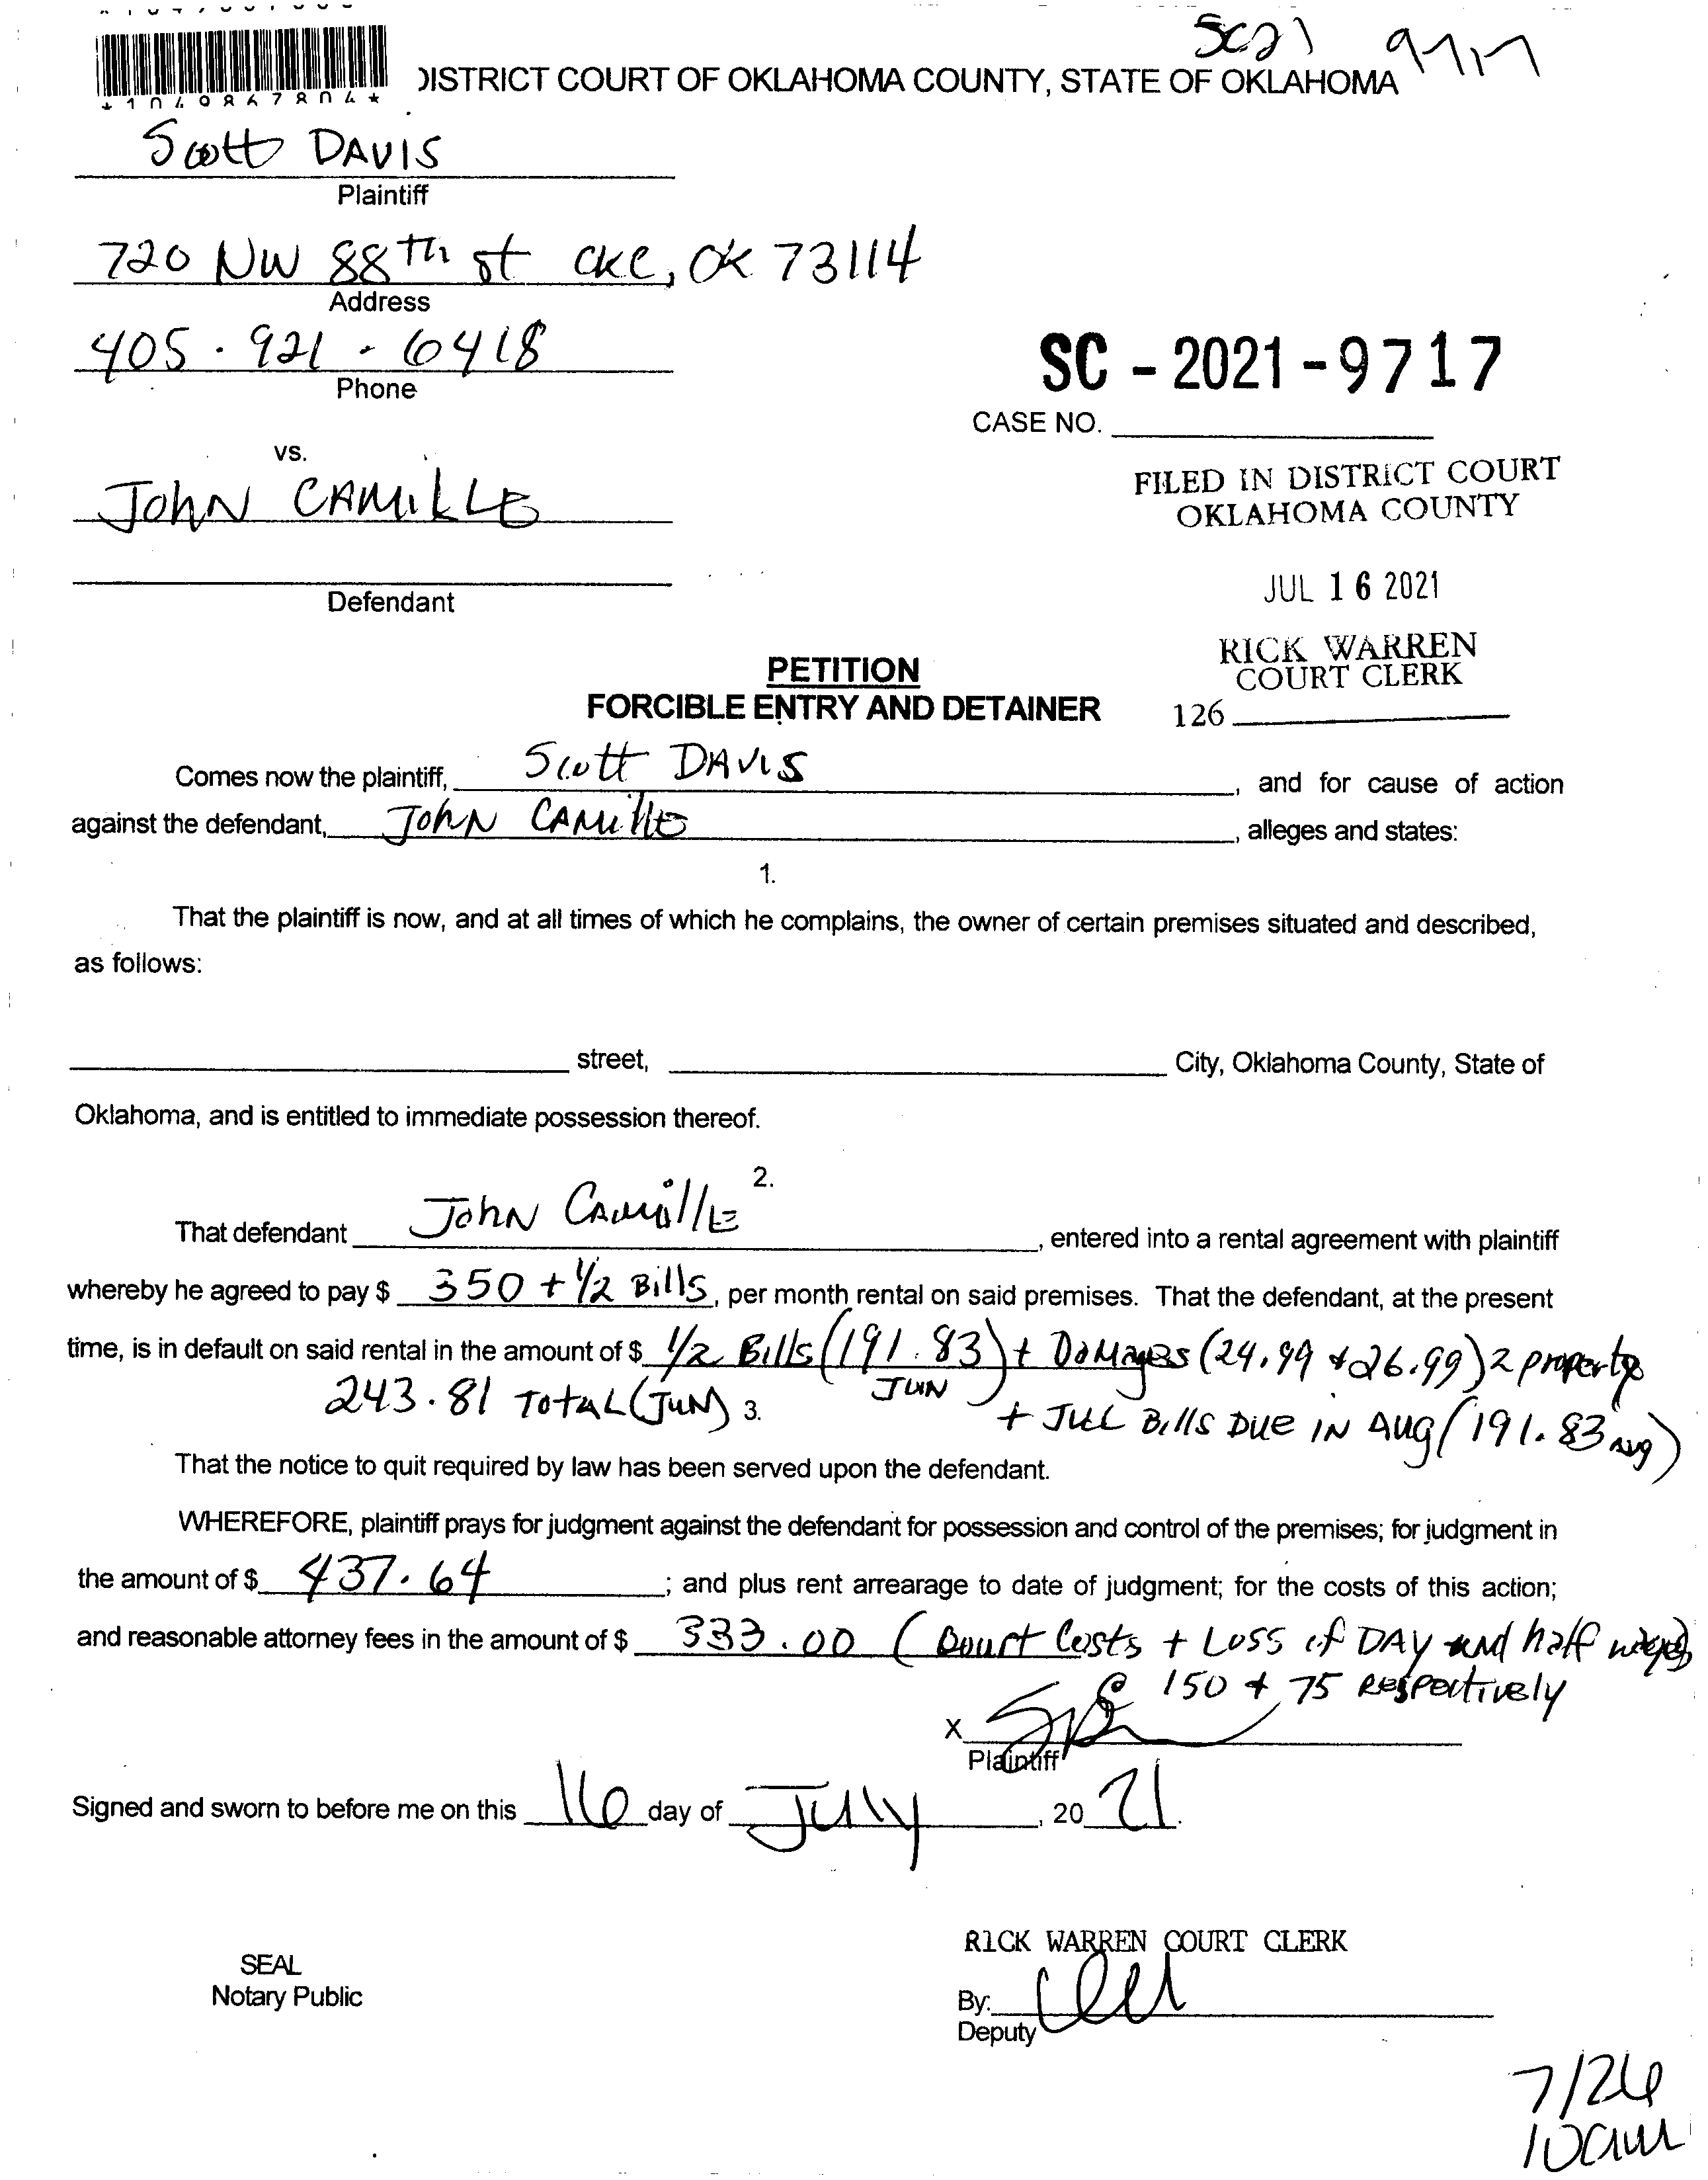 SC21 9717
DISTRICT COURT OF OKLAHOMA COUNTY, STATE OF OKLAHOMA
*1049867804*
Scott DAVIS
Plaintiff
720 NW 88th st OKC, OK 73114
Address
405 - 921 - 6418
Phone
SC - 2021 - 9717
CASE NO.
vs.
JOHN CAMILLE
FILED IN DISTRICT COURT
OKLAHOMA COUNTY
Defendant
JUL 16 2021
RICK WARREN
COURT CLERK
126
PETITION
FORCIBLE ENTRY AND DETAINER
Comes now the plaintiff, Scott DAVIS, and for cause of action
against the defendant, JOHN CAMILLE, alleges and states:
1.
That the plaintiff is now, and at all times of which he complains, the owner of certain premises situated and described,
as follows:
street, City, Oklahoma County, State of
Oklahoma, and is entitled to immediate possession thereof.
2.
That defendant JOHN CAMILLE, entered into a rental agreement with plaintiff
whereby he agreed to pay $ 350 + 1/2 Bills, per month rental on said premises. That the defendant, at the present
time, is in default on said rental in the amount of $ 1/2 Bills (191.83) + DaMages (24.99 + 26.99) 2 property
JUN
243.81 TOTAL (JUN)
3.
+ JUL Bills DUE IN AUg (191.83 Aug)
That the notice to quit required by law has been served upon the defendant.
WHEREFORE, plaintiff prays for judgment against the defendant for possession and control of the premises; for judgment in
the amount of $ 437.64; and plus rent arrearage to date of judgment; for the costs of this action;
and reasonable attorney fees in the amount of $ 333.00 (Court Costs + Loss of DAY and half wages)
@ 150 + 75 Respectively
X
Plaintiff
Signed and sworn to before me on this 16 day of July, 2021.
RICK WARREN COURT CLERK
SEAL
Notary Public
By:
Deputy
7/26
10am